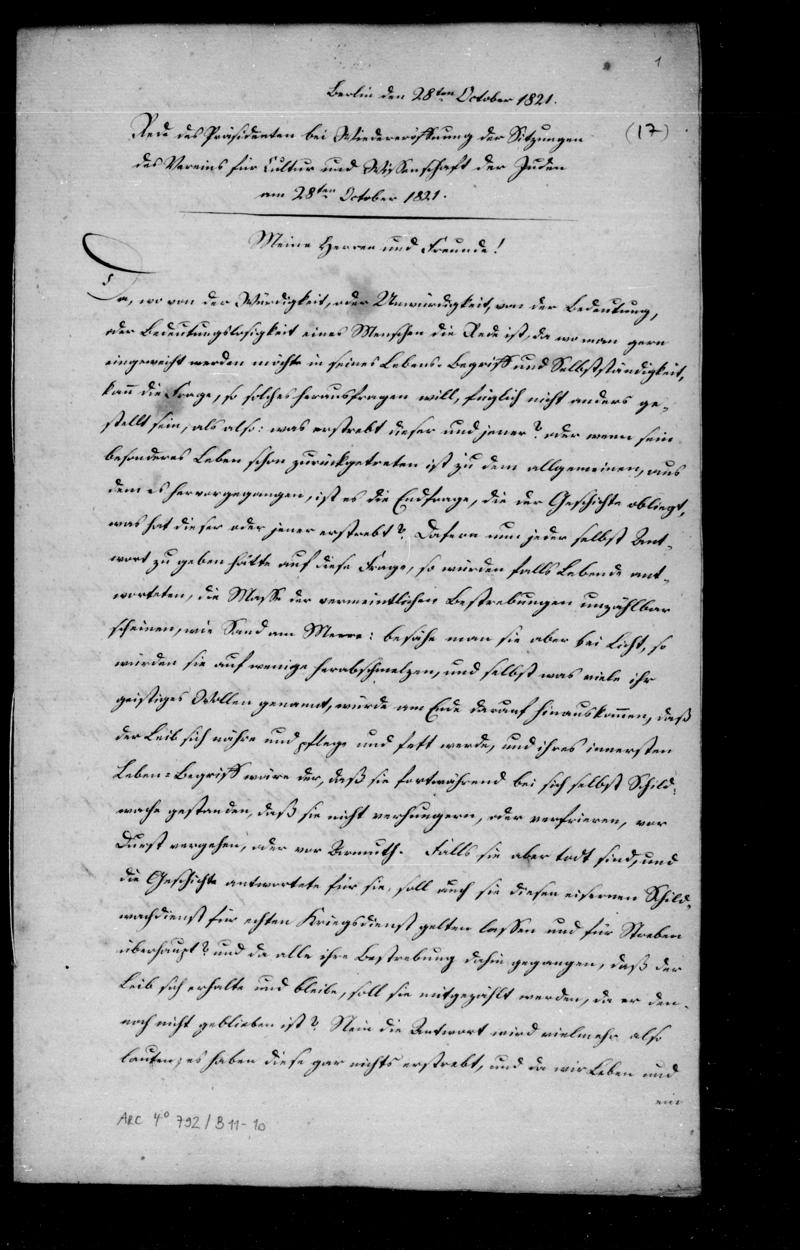 1
Berlin den 28ten October 1821.
Rede des Präsidenten bei Wiedereröffnung der Sitzungen
(17)
des Vereins für Cultur und Wissenschaft der Juden
am 28ten October 1821.
Meine Herren und Freunde!
Da, wo von der Würdigkeit, oder Unwürdigkeit, von der Bedeutung,
oder Bedeutungslosigkeit eines Menschen die Rede ist, da wo man gern
eingeweiht werden möchte in seines Lebens-Begriff und Selbstständigkeit,
kañ die Frage, so solches herausfragen will, füglich nicht anders ge-
stellt sein, als also: was erstrebt dieser und jener? oder wenn sein
besonderes Leben schon zurückgetreten ist zu dem allgemeinen, aus
dem es hervorgegangen, ist es die Endfrage, die der Geschichte obliegt,
was hat dieser oder jener erstrebt? Dafern nun jeder selbst Ant-
wort zu geben hätte auf diese Frage, so würden falls Lebende ant-
worteten, die Masse der vermeintlichen Bestrebungen unzählbar
scheinen, wie Sand am Meere: besähe man sie aber bei Licht, so
würden sie auf wenige herabschmelzen, und selbst was viele ihr
geistiges Wollen genannt, würde am Ende darauf hinauskom̃en, daß
der Leib sich nähre und pflege und fett werde, und ihres innersten
Leben-Begriff wäre der, daß sie fortwährend bei sich selbst Schild-
wache gestanden, daß sie nicht verhungern, oder erfrieren, vor
Durst vergehen, oder vor Armuth. Falls sie aber todt sind, und
die Geschichte antwortete für sie, soll auch sie diesen eisernen Schild-
wachdienst für echten Kriegsdienst gelten lassen und für Streben
überhaupt? und da alle ihre Bestrebung dahin gegangen, daß der
Leib sich erhalte und bleibe, soll sie mitgezählt werden, da er den-
noch nicht geblieben ist? Nein die Antwort wird vielmehr also
lauten; es haben diese gar nichts erstrebt, und da wir Leben und
ein
ARC 4° 792 / B 11-10